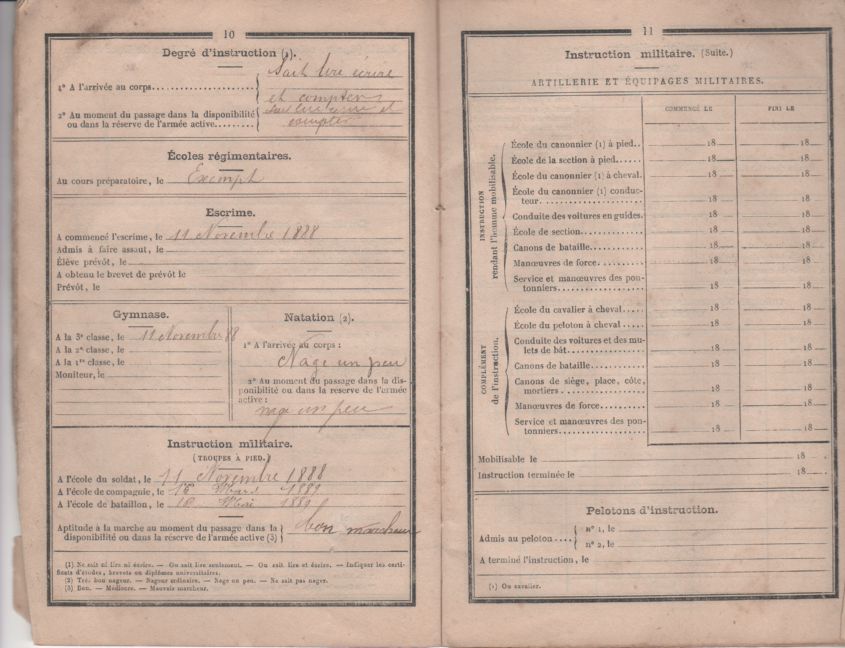 10
Degré d'instruction (1).
1° A l'arrivée au corps
Sait lire écrire
et compter
2° Au moment du passage dans la disponibilité
ou dans la réserve de l'armée active
Sait lire écrire et
compter
Écoles régimentaires.
Au cours préparatoire, le Exempt
Escrime.
A commencé l'escrime, le 11 Novembre 1888
Admis à faire assaut, le
Élève prévôt, le
A obtenu le brevet de prévôt le
Prévôt, le
Gymnase.
A la 3e classe, le 11 Novembre 88
A la 2e classe, le
A la 1re classe, le
Moniteur, le
Natation (2).
1° A l'arrivée au corps :
Nage un peu
2° Au moment du passage dans la dis-
ponibilité ou dans la réserve de l'armée
active :
nage un peu
Instruction militaire.
(TROUPES A PIED.)
A l'école du soldat, le 11 Novembre 1888
A l'école de compagnie, le 16 Mars 1889
A l'école de bataillon, le 18 Mai 1889
Aptitude à la marche au moment du passage dans la
disponibilité ou dans la réserve de l'armée active (3)
bon marcheur
(1) Ne sait ni lire ni écrire. — Ou sait lire seulement. — Ou sait lire et écrire. — Indiquer les certi-
ficats d'études, brevets ou diplômes universitaires.
(2) Très bon nageur. — Nageur ordinaire. — Nage un peu. — Ne sait pas nager.
(3) Bon. — Médiocre. — Mauvais marcheur.
11
Instruction militaire. (Suite.)
ARTILLERIE ET ÉQUIPAGES MILITAIRES.
COMMENCÉ LE
FINI LE
INSTRUCTION
rendant l'homme mobilisable.
École du canonnier (1) à pied.. 18 18
École de la section à pied...... 18 18
École du canonnier (1) à cheval. 18 18
École du canonnier (1) conduc-
teur 18 18
Conduite des voitures en guides. 18 18
École de section 18 18
Canons de bataille 18 18
Manœuvres de force 18 18
Service et manœuvres des pon-
tonniers 18 18
COMPLÉMENT
de l'instruction.
École du cavalier à cheval 18 18
École du peloton à cheval 18 18
Conduite des voitures et des mu-
lets de bât 18 18
Canons de bataille 18 18
Canons de siége, place, côte,
mortiers 18 18
Manœuvres de force 18 18
Service et manœuvres des pon-
tonniers 18 18
Mobilisable le 18
Instruction terminée le 18
Pelotons d'instruction.
Admis au peloton
n° 1, le
n° 2, le
A terminé l'instruction, le
(1) Ou cavalier.